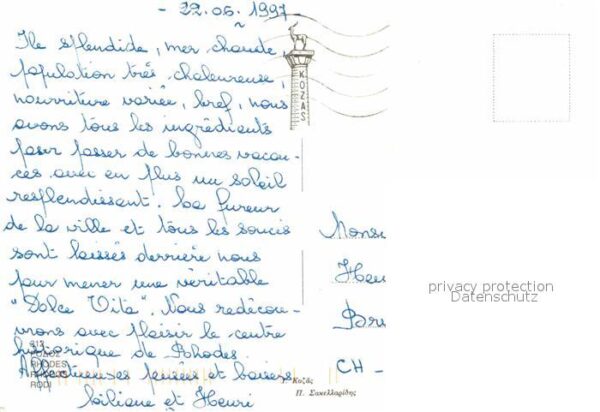 - 22.05.1997 -
Ile splendide, mer chaude,
population très chaleureuse,
nourriture variée, bref, nous
avons tous les ingrédients
pour passer de bonnes vacan-
ces avec en plus un soleil
resplendissant. La fureur
de la ville et tous les soucis
sont laissés derrière nous
pour mener une véritable
"Dolce Vita". Nous redécou-
vrons avec plaisir le centre
historique de Rhodes.
Affectueuses pensées et baisers
Liliane et Henri
KOZAS
312
ΡΟΔΟΣ
RHODES
RODI
Κοζάς
Π. Σακελλαρίδης
Monsi
Hen
Bru
CH -
privacy protection
Datenschutz